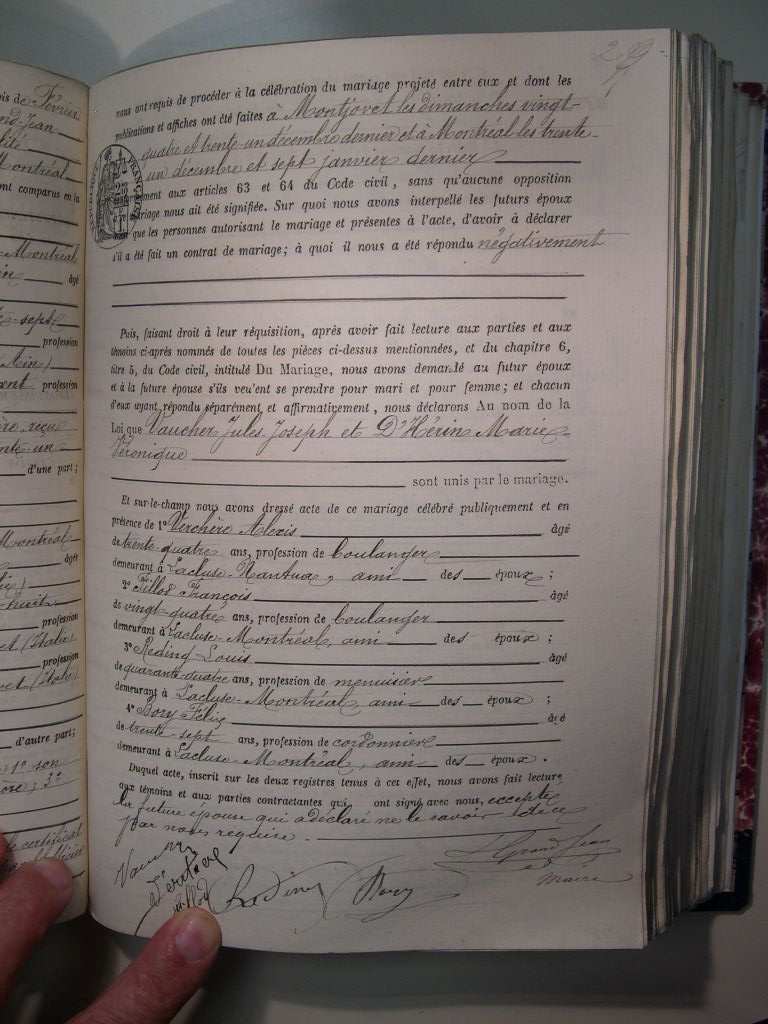 is de Février
and Jean
Montréal
ont comparus en la
Montréal
âgé
sept
profession
(Ain)
profession
reçu
trente-un
d'une part;
Montréal
âgée
huit
profession
(Italie)
profession
(Italie)
d'autre part;
1° son
3°
le certificat
289
nous ont requis de procéder à la célébration du mariage projeté entre eux et dont les
publications et affiches ont été faites à Montjovet les dimanches vingt-
quatre et trente-un décembre dernier et à Montréal les trente-
un décembre et sept janvier dernier
RÉPUBLIQUE FRANÇAISE
aux articles 63 et 64 du Code civil, sans qu'aucune opposition
mariage nous ait été signifiée. Sur quoi nous avons interpellé les futurs époux
que les personnes autorisant le mariage et présentes à l'acte, d'avoir à déclarer
s'il a été fait un contrat de mariage; à quoi il nous a été répondu négativement
Puis, faisant droit à leur réquisition, après avoir fait lecture aux parties et aux
témoins ci-après nommés de toutes les pièces ci-dessus mentionnées, et du chapitre 6,
titre 5, du Code civil, intitulé Du Mariage, nous avons demandé au futur époux
et à la future épouse s'ils veulent se prendre pour mari et pour femme; et chacun
d'eux ayant répondu séparément et affirmativement, nous déclarons Au nom de la
Loi que Vaucher Jules Joseph et D'Hérin Marie
Véronique
sont unis par le mariage.
Et sur-le-champ nous avons dressé acte de ce mariage célébré publiquement et en
présence de 1° Verchère Alexis âgé
de trente-quatre ans, profession de boulanger
demeurant à Lacluse-Nantua, ami des époux;
2° Fillod François âgé
de vingt-quatre ans, profession de boulanger
demeurant à Lacluse-Montréal, ami des époux;
3° Reding Louis âgé
de quarante-quatre ans, profession de menuisier
demeurant à Lacluse-Montréal ami des époux;
4° Bory Félix âgé
de trente-sept ans, profession de cordonnier
demeurant à Lacluse-Montréal, ami des époux.
Duquel acte, inscrit sur les deux registres tenus à cet effet, nous avons fait lecture
aux témoins et aux parties contractantes qui ont signé avec nous, excepté
la future épouse qui a déclaré ne le savoir de ce
par nous requise.
Grand Jean
Maire
Reding Bory